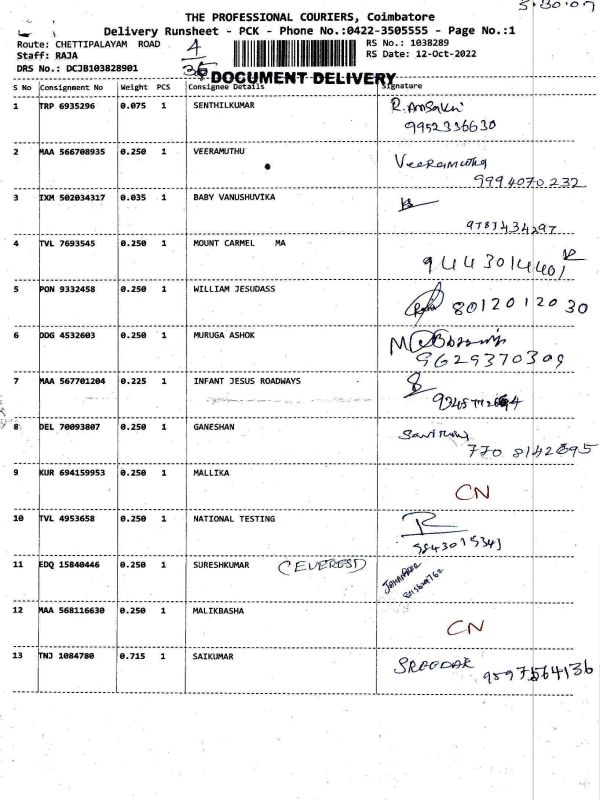 5.30.07
THE PROFESSIONAL COURIERS, Coimbatore
Delivery Runsheet - PCK - Phone No.:0422-3505555 - Page No.:1
Route: CHETTIPALAYAM ROAD 4 RS No.: 1038289
Staff: RAJA 35 RS Date: 12-Oct-2022
DRS No.: DCJB103828901 DOCUMENT DELIVERY
S No Consignment No Weight PCS Consignee Details Signature
1 TRP 6935296 0.075 1 SENTHILKUMAR
9952336630
2 MAA 566708935 0.250 1 VEERAMUTHU Veeramuthu
9994070232
3 IXM 502034317 0.035 1 BABY VANUSHUVIKA
9783434297
4 TVL 7693545 0.250 1 MOUNT CARMEL MA
9443014401
5 PON 9332458 0.250 1 WILLIAM JESUDASS
8012012030
6 DDG 4532603 0.250 1 MURUGA ASHOK
9629370309
7 MAA 567701204 0.225 1 INFANT JESUS ROADWAYS
8 DEL 70093807 0.250 1 GANESHAN
770 8142895
9 KUR 694159953 0.250 1 MALLIKA
CN
10 TVL 4953658 0.250 1 NATIONAL TESTING
9843015343
11 EDQ 15840446 0.250 1 SURESHKUMAR (EVEREST)
12 MAA 568116630 0.250 1 MALIKBASHA
CN
13 TNJ 1084780 0.715 1 SAIKUMAR SREEDAR
9597564136